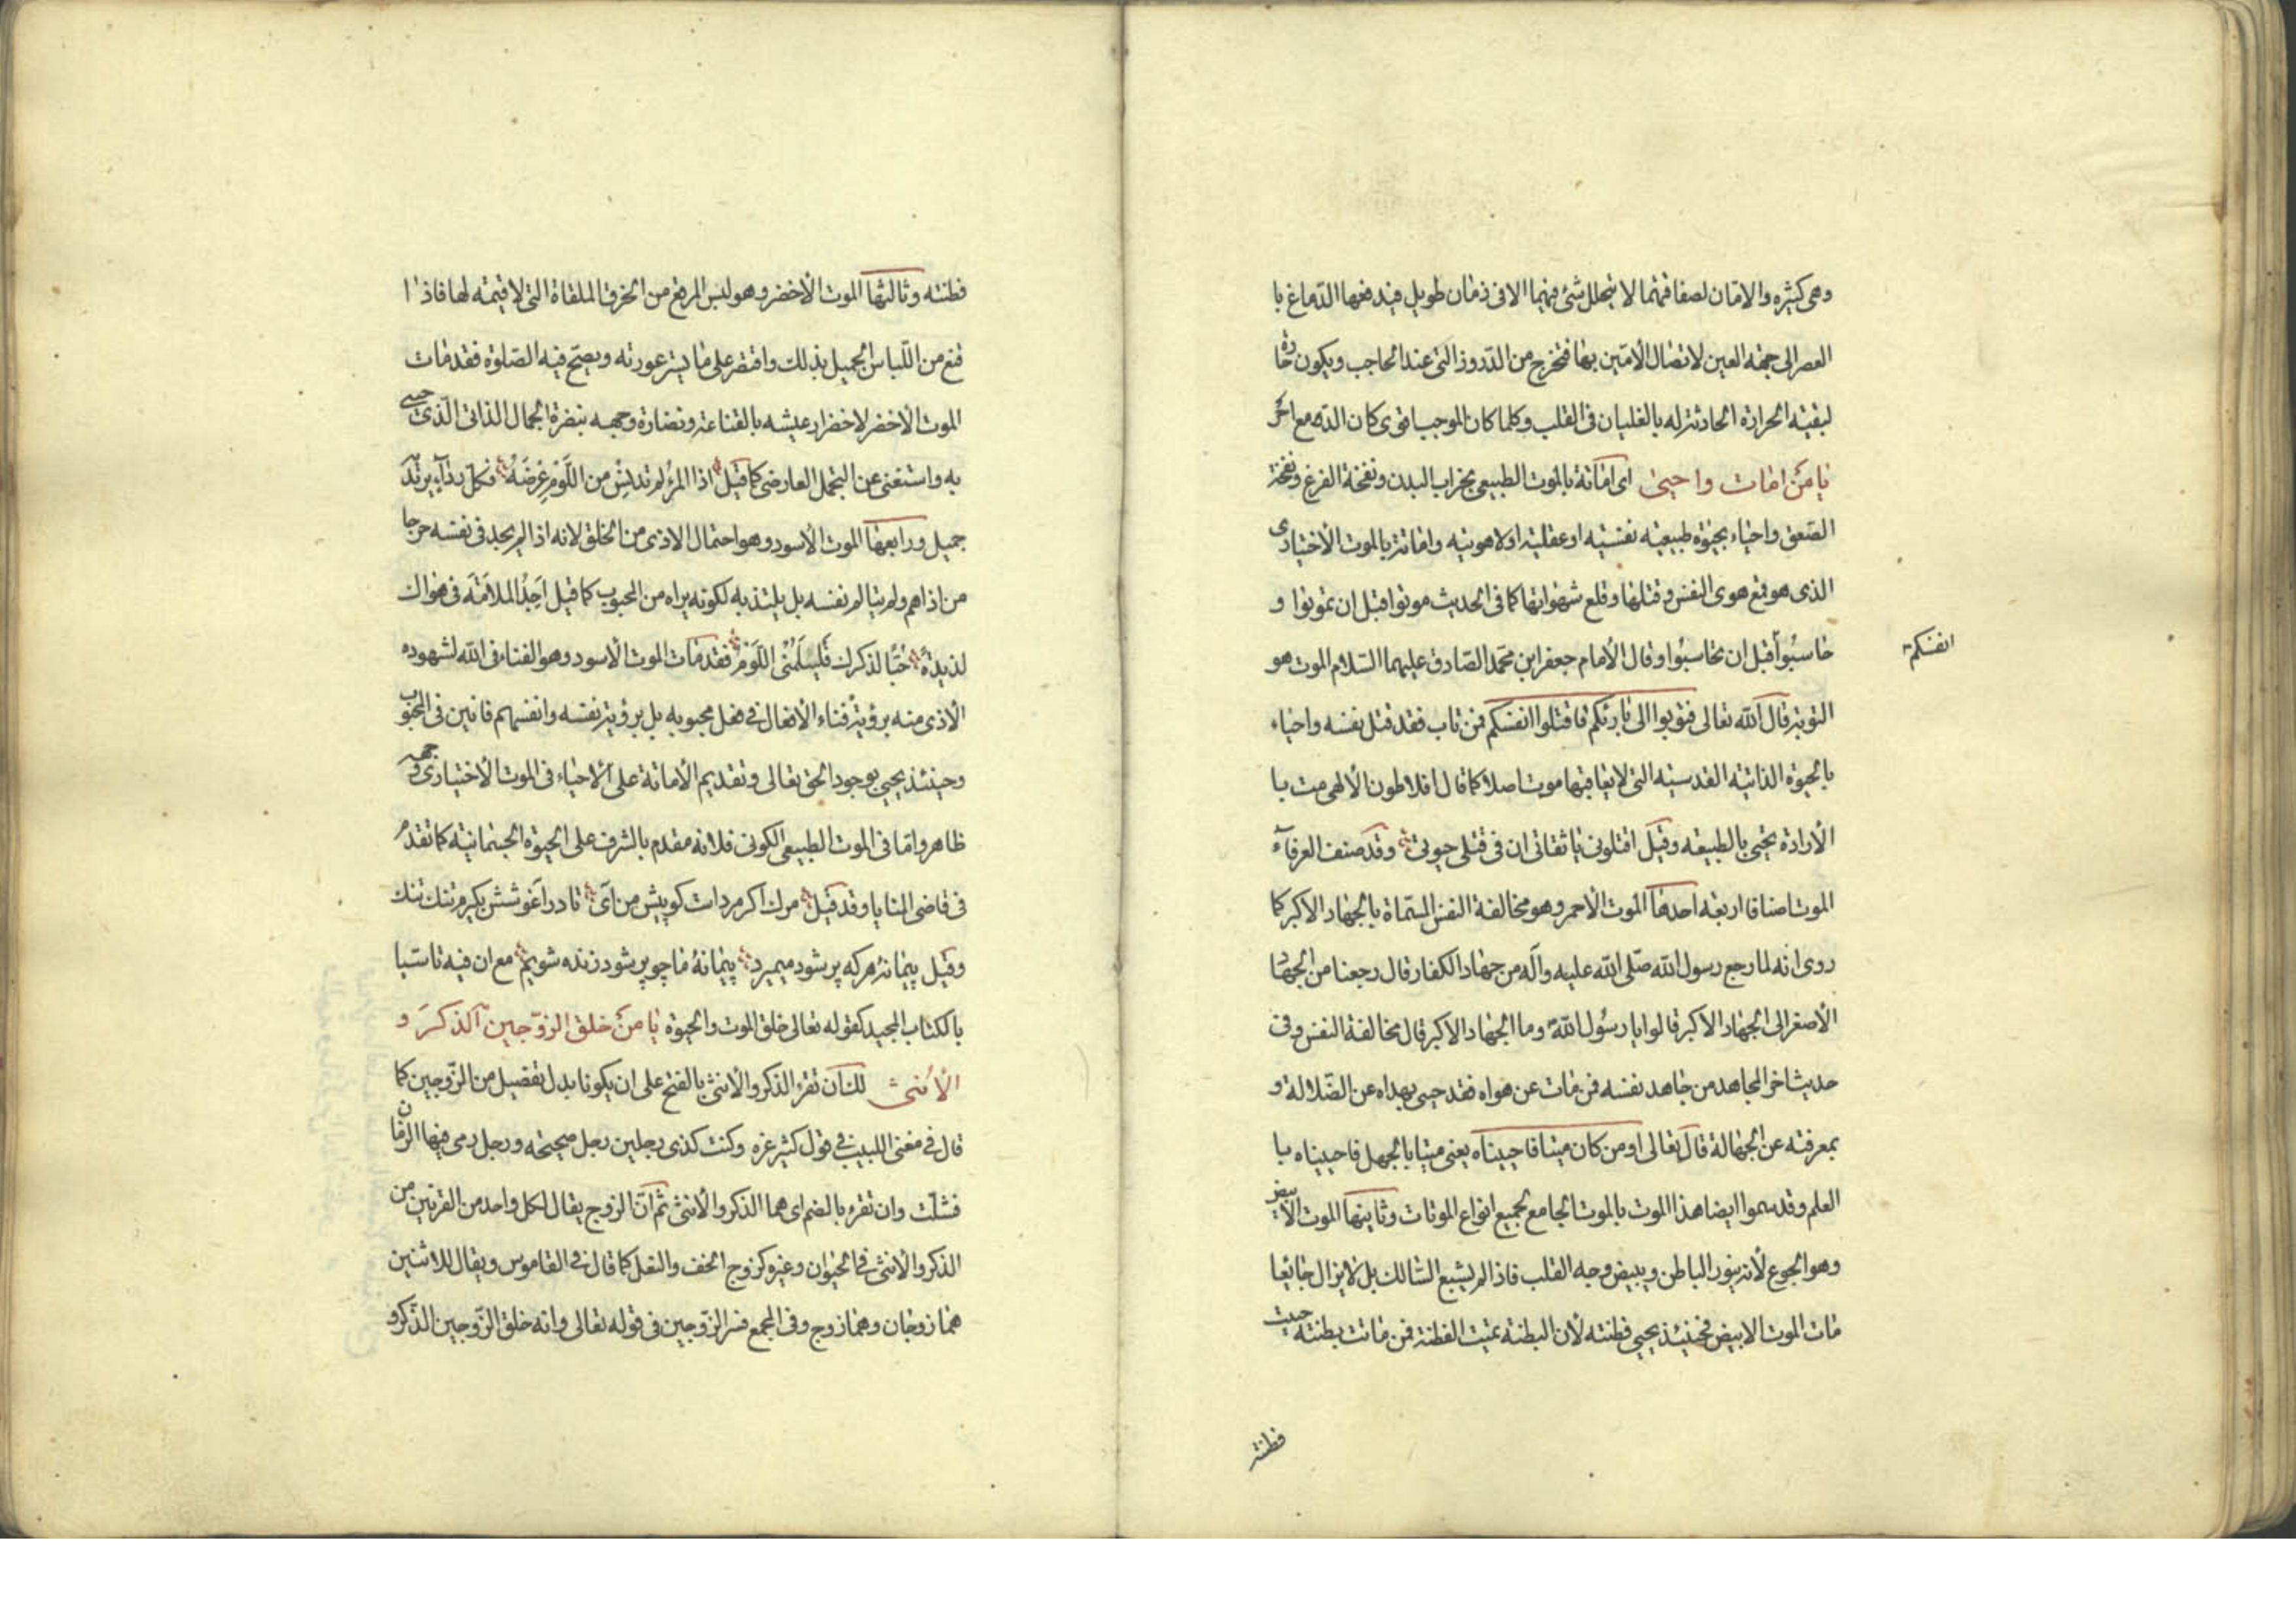 وهى كثيره والامّان لصفاقتهما لا يتحلل شئ منهما الا فى زمان طويل فيدفعها الدّماغ با
العصر الى جهة العين لاتصال الامّين بها فتخرج من الدّروز التى عند الحاجب ويكون حارّة
لبقية الحرارة الحادثة له بالغليان فى القلب وكلما كان الموجب اقوى كان الدّمع احرّ
يا مَنْ امات واحيى اى اماتة بالموت الطبيعى بخراب البدن ونفخة الفزع ونفخة
الصّعق واحياء بحيٰوة طبيعيه نفسيّه او عقليّه او لاهوتيه واماتة بالموت الأختيارى
الذى هو قمع هوى النفس وقتلها وقلع شهواتها كما فى الحديث موتوا قبل ان تموتوا و
حاسبُوا قبل ان تحاسبُوا وقال الأمام جعفر ابن محمّد الصّادق عليهما السّلام الموت هو
انفسكم
التوبة قال اللّه تعالى فتوبوا الى بارئكم فاقتلوا انفسكم فمن تاب فقد قتل نفسه واحياء
بالحيوة الذاتيّه القدسيّه التى لا يعاقبها موت اصلا كما قال افلاطون الألهى مت با
الأرادة تحيى بالطبيعه وقيل اقتلونى يا ثقاتى ان فى قتلى حيوتى وقد صنف العرفآء
الموت اصنافا اربعه احدها الموت الأحمر وهو مخالفة النفس المسمّاة بالجهاد الأكبر كما
روى انه لما رجع رسول اللّه صلّى اللّه عليه وآله من جهاد الكفار قال رجعنا من الجهاد
الأصغر الى الجهاد الأكبر قالوا يا رسُول اللّه وما الجهاد الأكبر قال مخالفة النفس وفى
حديث اخر المجاهد من جاهد نفسه فمن مات عن هواه فقد حيى بهداه عن الضّلالة و
بمعرفته عن الجهالة قال تعالى او من كان ميتا فاحييناه يعنى ميتا بالجهل فاحييناه با
العلم وقد سموا ايضا هذا الموت بالموت الجامع لجميع انواع الموتات وثانيها الموت الأبيض
وهو الجوع لأنه ينور الباطن ويبيض وجه القلب فاذا لم يشبع السّالك بل لا يزال جايعا
مات الموت الابيض فحينئذ يحيى فطنته لأن البطنة تميت الفطنة فمن ماتت بطنته حييت
فطنته
فطنته وثالثها الموت الأخضر وهو لبس المرقع من الخرق الملقاة التى لا قيمة لها فاذا
قنع من اللّباس الجميل بذلك واقتصر على ما يستر عورته ويصحّ فيه الصّلوة فقد مات
الموت الأخضر لاخضرار عيشه بالقناعة ونضارة وجهه بنضرة الجمال الذاتى الّذى حيى
به واستغنى عن التجمل العارضى كما قيل اذا المرءُ لم تدنس من اللَّومِ عِرضَهُ فكلّ ردآءٍ يرتدَ
جميل ورابعها الموت الأسود وهو احتمال الاذى من الخلق لانه اذا لم يجد فى نفسه حرجا
من اذاهم ولم يتالم نفسه بل يلتذ به لكونه يراه من المحبوب كما قيل اَجِدُ المَلامَةَ فى هواك
لذيذةً حُبًّا لذكرك فليسلَمُنى اللوَّمُ فقد مات الموت الأسود وهو الفناء فى اللّه لشهوده
الاذى منه برؤية فناء الأفعال فى فعل محبوبه بل برؤية نفسه وانفسهم فانين فى المحبوب
وحينئذ يحيى بوجود الحق تعالى وتقديم الأماتة على الأحياء فى الموت الأختيارى وجهه
ظاهر وامّا فى الموت الطبيعى الكونى فلانه مقدم بالشرف على الحيوة الجسمانيّه كما تقدم
فى قاضى المنايا وقد قيل مرك اكر مرد است كو پيش من آى تا در آغوشش بكيرم تنك تنك
وقيل پيمانۀ هر كه پر شود ميميرد پيمانۀ ما چو پر شود زنده شويم مع ان فيه تاسّيا
بالكتاب المجيد كقوله تعالى خلق الموت والحيوة يا مَنْ خلق الزوّجين الذكرَ و
الأُنثى للكَ ان تقرء الذكر والأنثى بالفتح على ان يكونا بدل تفصيل من الزّوجين كما
قال فى مغنى اللبيب فى قول كثير عزه وكنت كذى رجلين رجل صحيحه ورجل رمى فيها الزمان
فشلّت وان تقرء بالضم اى هما الذكر والأنثى ثمّ انّ الزوج يقال لكل واحد من القرنين من
الذكر والأنثى فى الحيوان وغيره كزوج الخف والنعل كما قال فى القاموس ويقال للاثنين
هما زوجان وهما زوج وفى المجمع فسر الزّوجين فى قوله تعالى وانه خلق الزّوجين الذّكر و